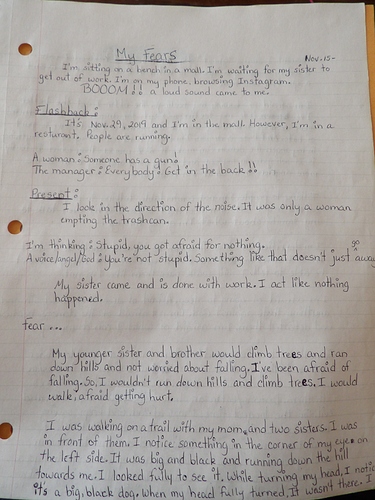 My Fears
Nov. 15-
I'm sitting on a bench in a mall. I'm waiting for my sister to
get out of work. I'm on my phone, browsing Instagram.
BOOOM!! a loud sound came to me.
Flashback:
It's Nov. 29, 2019 and I'm in the mall. However, I'm in a
resturant. People are running.
A woman: Someone has a gun!
The manager: Everybody: Get in the back!!
Present:
I look in the direction of the noise. It was only a woman
empting the trashcan.
I'm thinking: Stupid, you got afraid for nothing.
A voice/angel/God: You're not stupid. Something like that doesn't just go away
My sister came and is done with work. I act like nothing
happened.
Fear...
My younger sister and brother would climb trees and ran
down hills and not worried about falling. I've been afraid of
falling. So, I wouldn't run down hills and climb trees. I would
walk, afraid getting hurt.
I was walking on a trail with my mom, and two sisters. I was
in front of them. I notice something in the corner of my eye on
the left side. It was big and black and running down the hill
towards me. I looked fully to see it. While turning my head, I notic
it's a big, black dog. When my head fully turned, it wasn't there. I